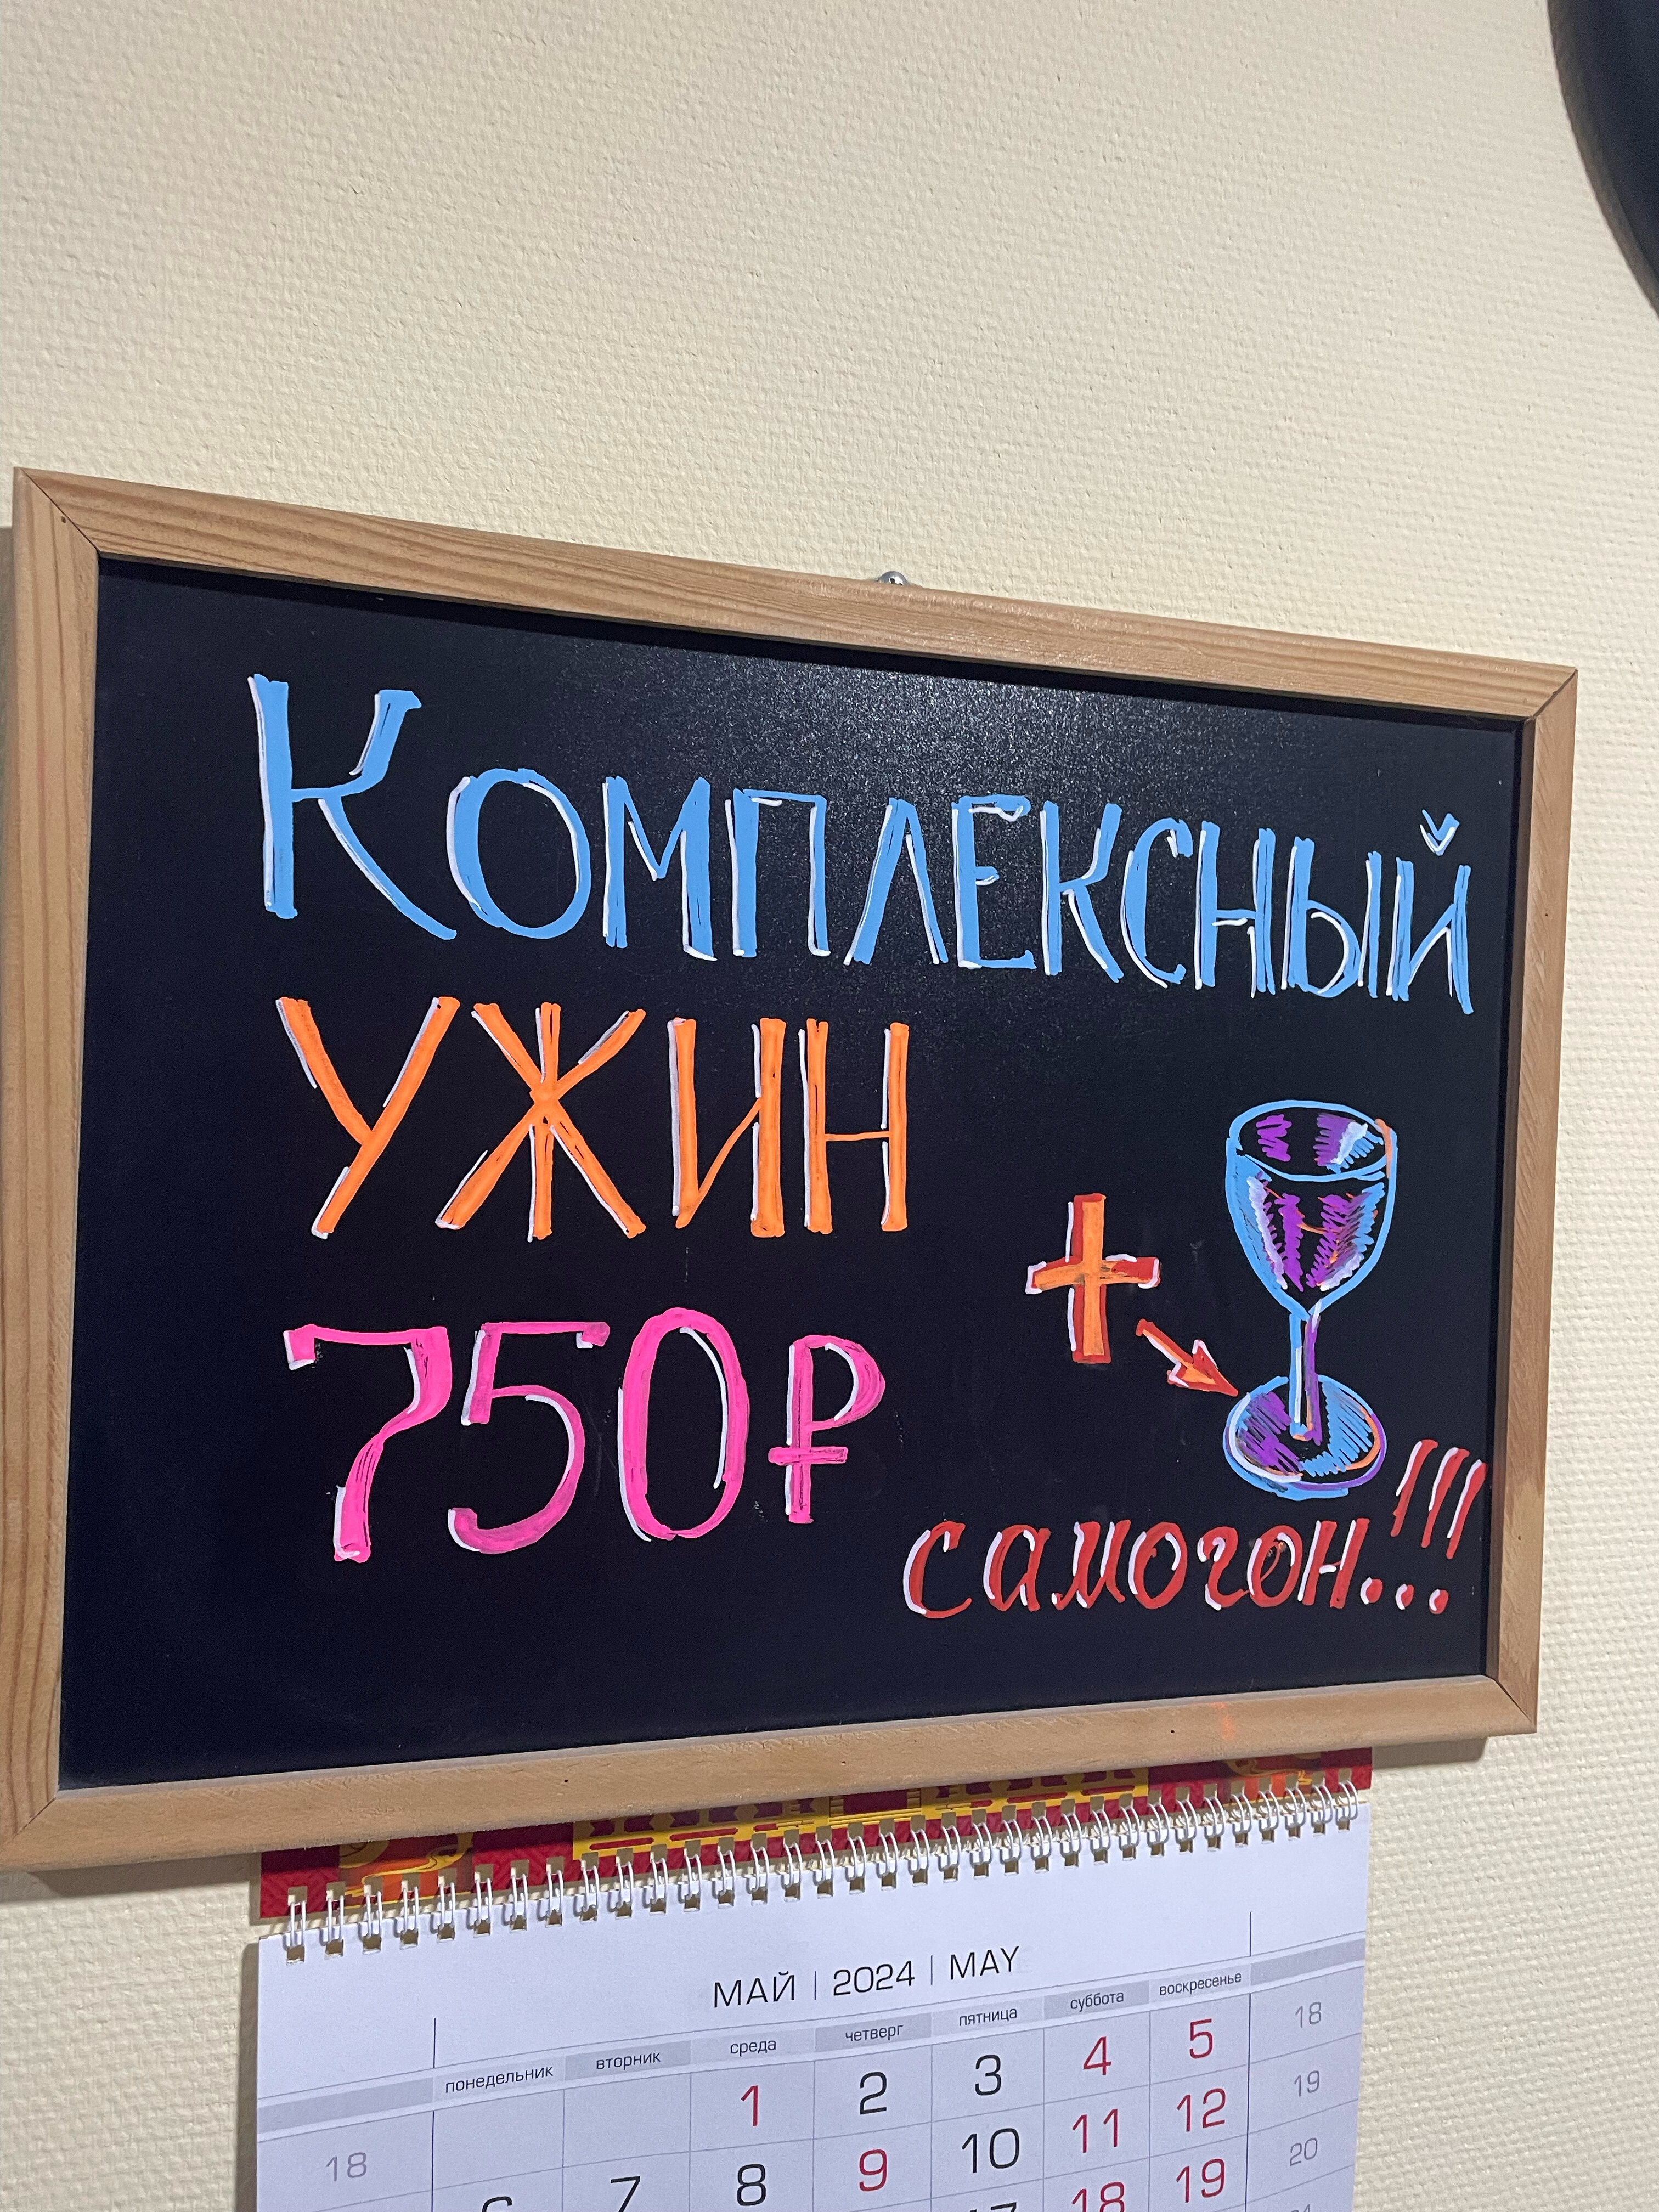 Комплексный
ужин
+
750₽
самогон...!!!
МАЙ | 2024 | MAY
понедельник вторник среда четверг пятница суббота воскресенье
1 2 3 4 5 18
18 7 8 9 10 11 12 19
18 19 20